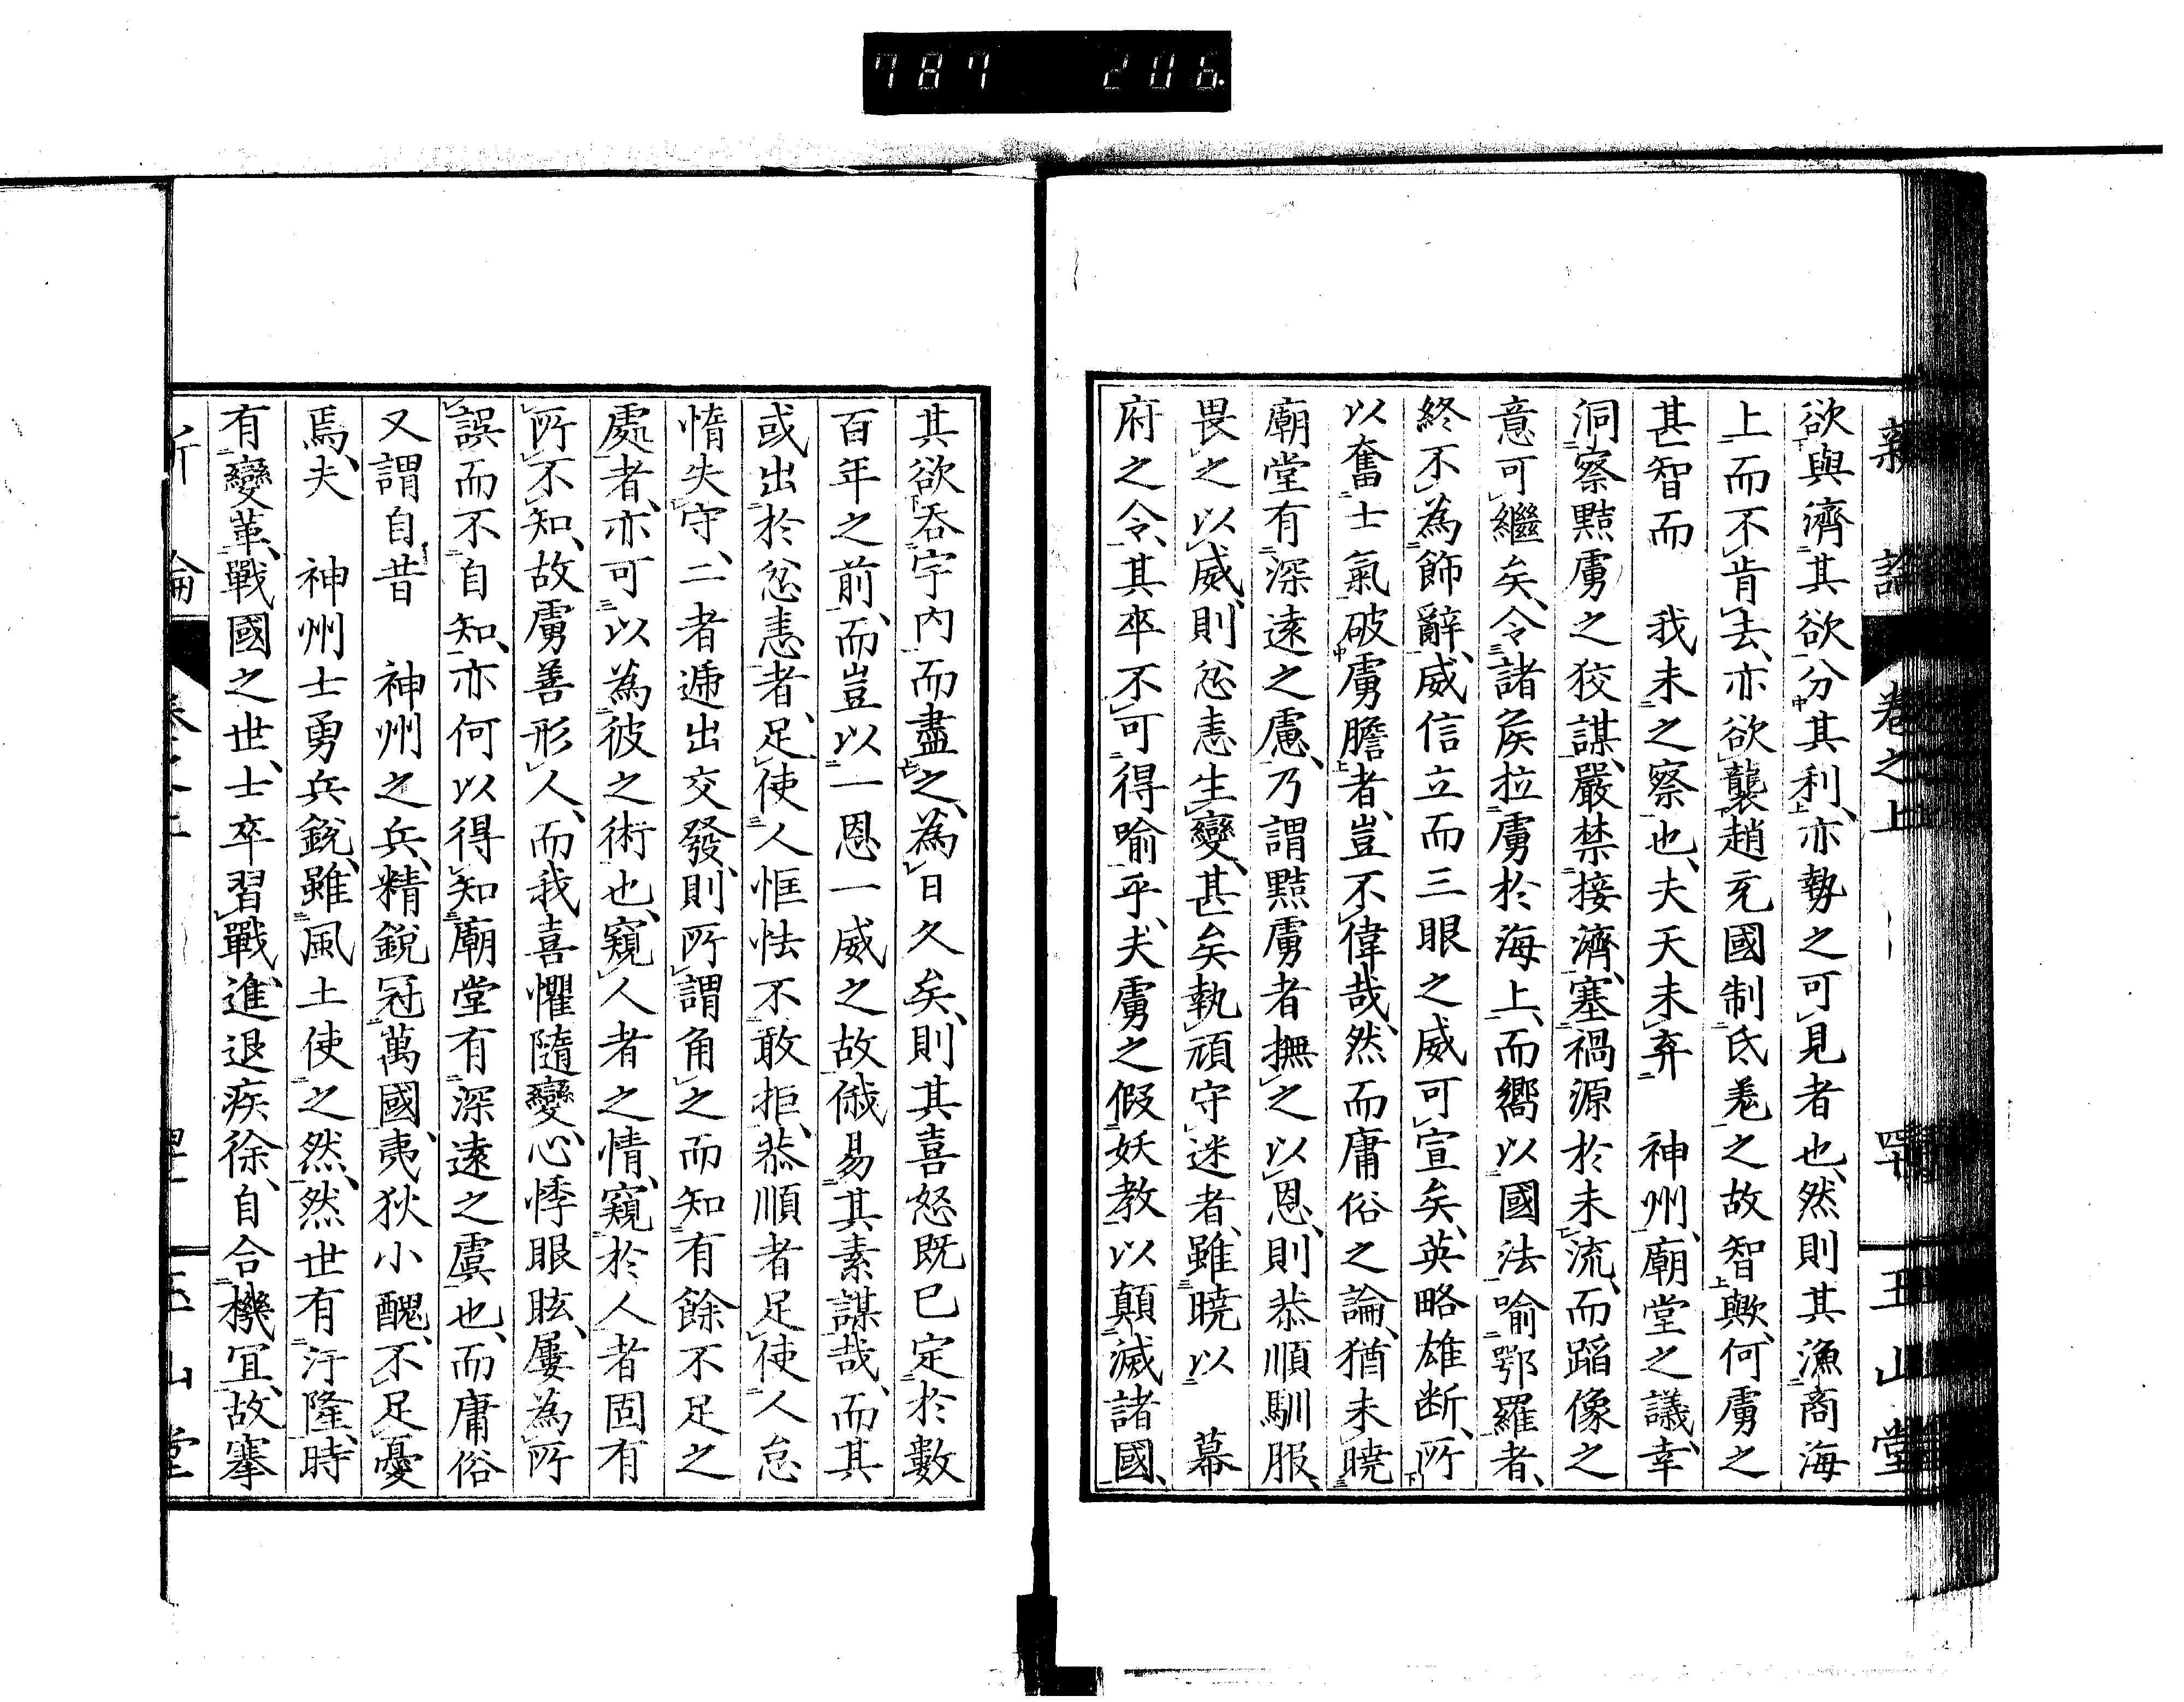 787 206
新論 卷之上 玉山堂
欲與濟其欲分其利、亦勢之可見者也、然則其漁商海
上而不肯去、亦欲襲趙充國制氐羌之故智歟、何虜之
甚智而 我未之察也、夫天未弃 神州、廟堂之議、幸
洞察黠虜之狡謀、嚴禁接濟、塞禍源於未流、而蹈像之
意可繼矣、令諸矦拉虜於海上、而嚮以國法喻鄂羅者、
終不為飾辭、威信立而三眼之威可宣矣、英略雄断、所
以奮士氣破虜膽者、豈不偉哉、然而庸俗之論、猶未曉
廟堂有深遠之慮、乃謂黠虜者撫之以恩、則恭順馴服、
畏之以威、則忿恚生變、甚矣執頑守迷者、雖曉以 幕
府之令、其卒不可得喻乎、犬虜之假妖教以顛滅諸國、
其欲吞宇内而盡之、為日久矣、則其喜怒既已定於數
百年之前、而豈以一恩一威之故、俄易其素謀哉、而其
或出於忿恚者、足使人恇怯不敢拒、恭順者足使人怠
惰失守、二者遞出交發、則所謂角之而知有餘不足之
處者、亦可以為彼之術也、窺人者之情、窺於人者固有
所不知、故虜善形人、而我喜懼隨變、心悸眼眩、屢為所
誤而不自知、亦何以得知廟堂有深遠之虞也、而庸俗
又謂自昔 神州之兵、精銳冠萬國、夷狄小醜、不足憂
焉、夫 神州士勇兵銳、雖風土使之然、然世有汙隆、時
有變革、戰國之世、士卒習戰、進退疾徐、自合機冝、故搴
新論 玉山堂